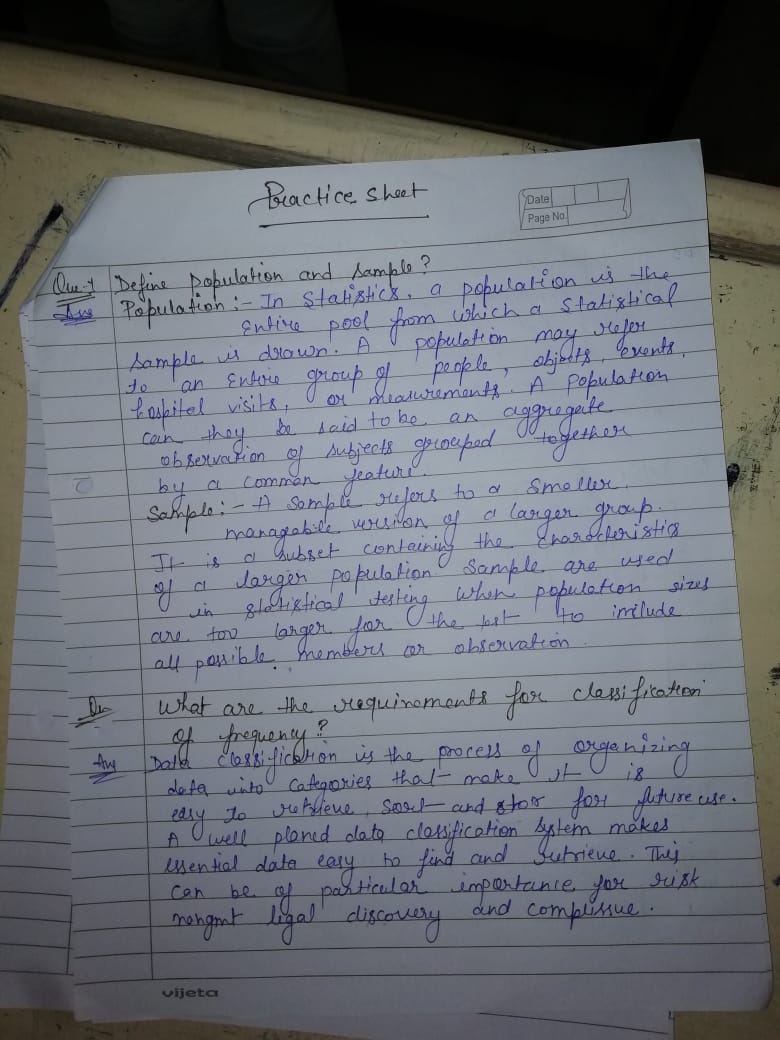 Practice sheet
Date
Page No.
Que-1 Define Population and Sample?
Ans Population :- In Statistics, a population is the
Entire pool from which a statistical
sample is drawn. A population may refer
to an Entire group of people, objects, events,
hospital visits, or measurements. A Population
can they be said to be an aggregate
observation of subjects grouped together
by a common feature.
Sample :- A sample refers to a smaller,
managable version of a larger group.
It is a subset containing the characteristics
of a larger population. Sample are used
in statistical testing when population sizes
are too larger for the test to include
all possible members or observation.
Qu What are the requirements for classification
of frequency?
Ans Data classification is the process of organizing
data into categories that make it is
easy to retrieve, Sort and stor for future use.
A well planed data classification system makes
essential data easy to find and retrieve. This
can be of particular importance for risk
legal discovery and
vijeta